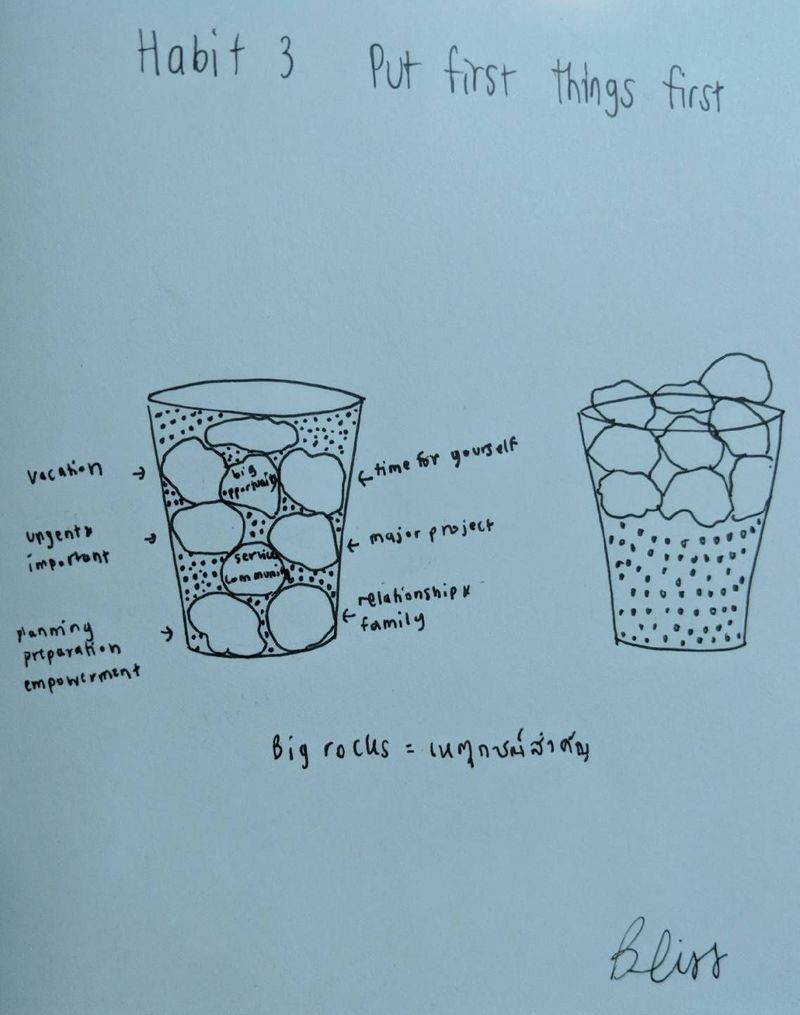 Habit 3 Put first things first
vacation
urgent &
important
planning
preparation
empowerment
big
opportunity
service
community
time for yourself
major project
relationship &
family
Big rocks = เหตุการณ์สำคัญ
Bliss